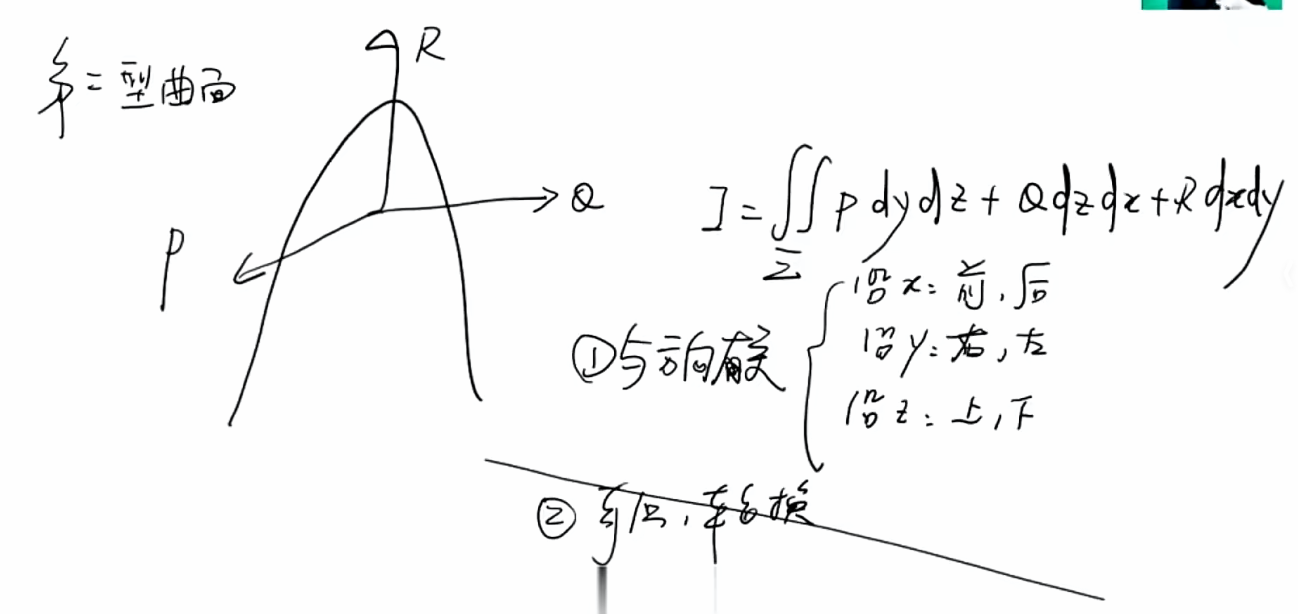 第二型曲面
R
Q
P
I = ∬_Σ P dydz + Q dzdx + R dxdy
①与方向有关
沿x: 前, 后
沿y: 右, 左
沿z: 上, 下
② 奇偶, 轮换